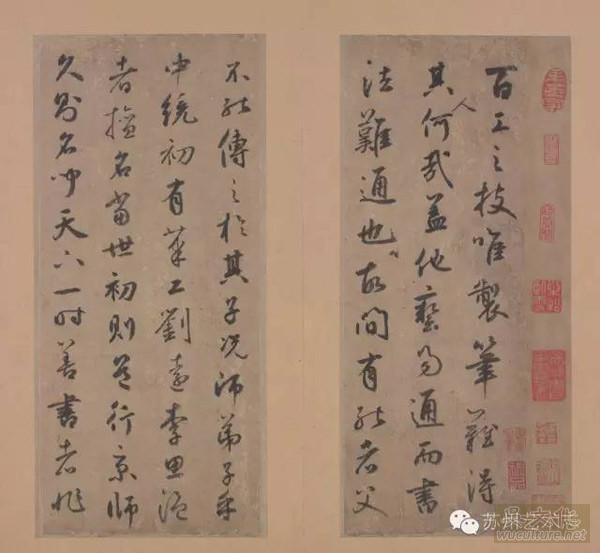 百工之技唯製筆難得
其人何哉盖他藝可通而書
法難通也故間有能者父
不能傳之於其子况師弟子乎
中統初有筆工劉遠李思溫
者擅名當世初則名行京師
久則名中天下一时善書者非
苏州艺文化
wuculture.net